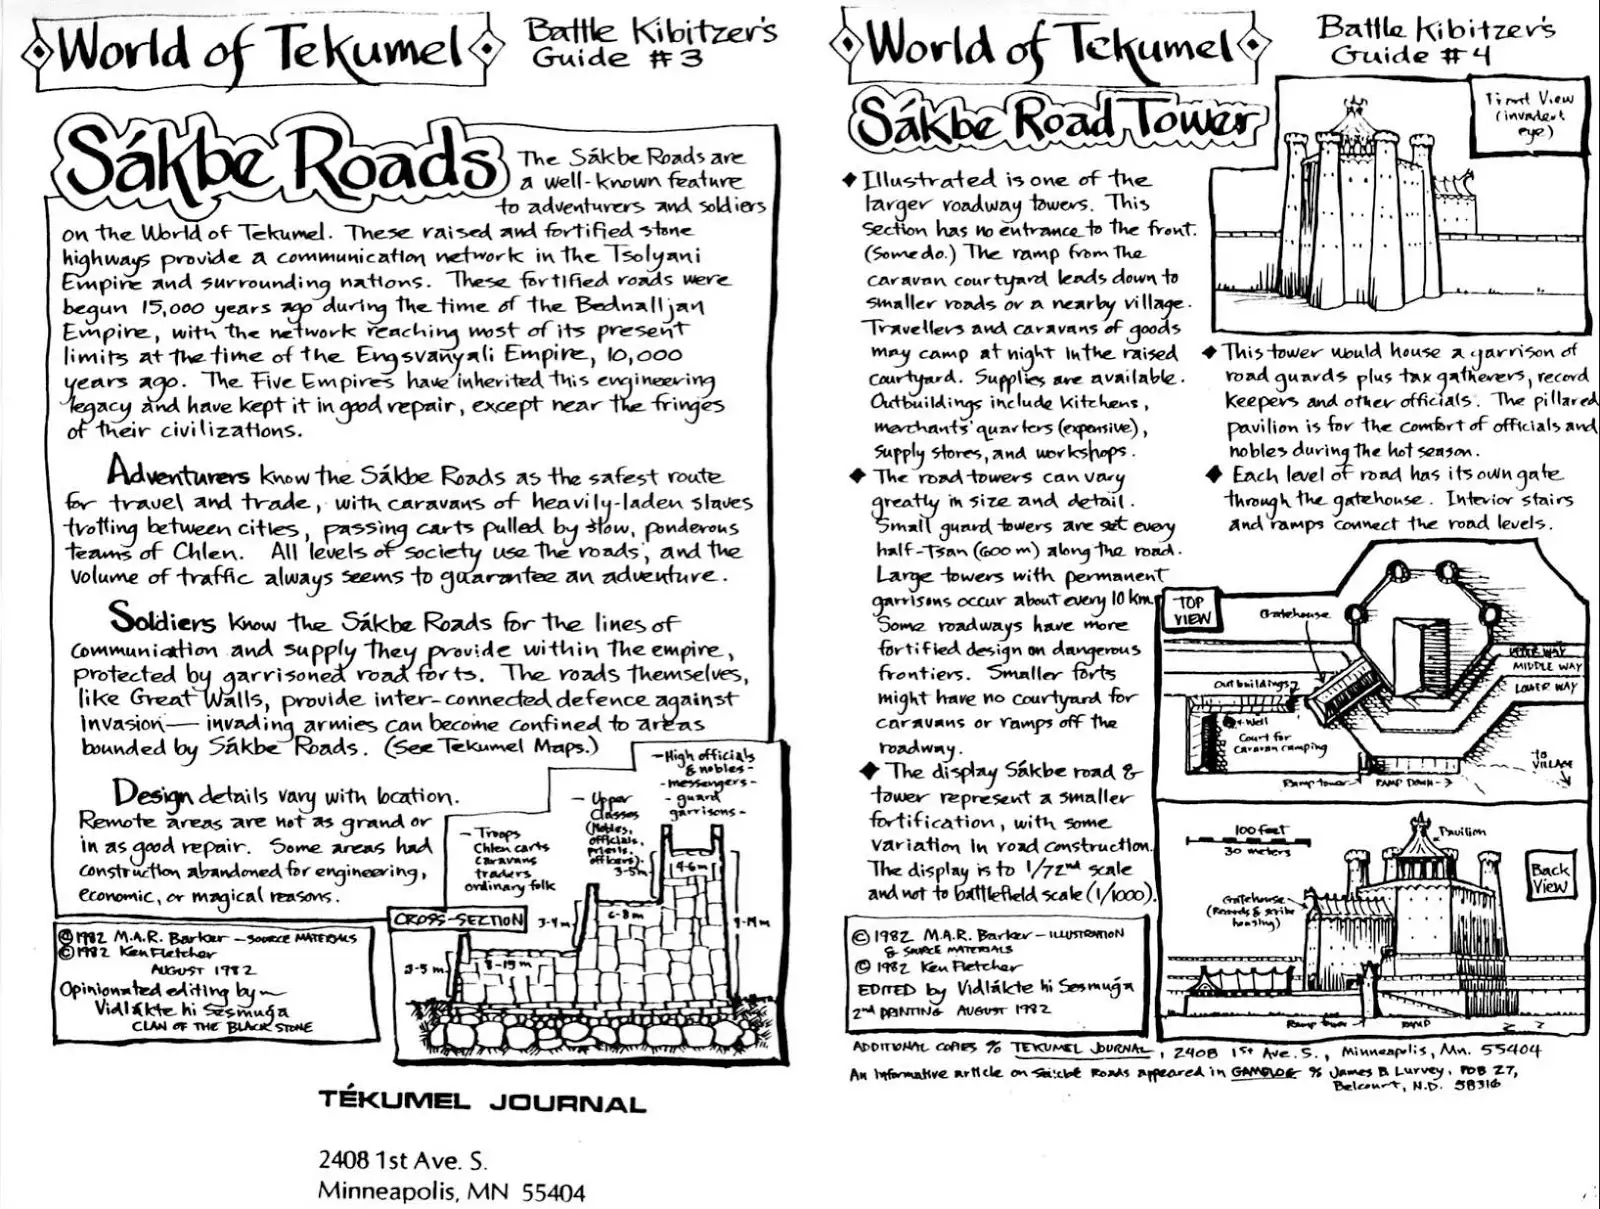 World of Tekumel
Battle Kibitzer's
Guide #3
Sákbe Roads
The Sákbe Roads are
a well-known feature
to adventurers and soldiers
on the World of Tekumel. These raised and fortified stone
highways provide a communication network in the Tsolyani
Empire and surrounding nations. These fortified roads were
begun 15,000 years ago during the time of the Bednalljan
Empire, with the network reaching most of its present
limits at the time of the Engsvanyali Empire, 10,000
years ago. The Five Empires have inherited this engineering
legacy and have kept it in good repair, except near the fringes
of their civilizations.
Adventurers know the Sákbe Roads as the safest route
for travel and trade, with caravans of heavily-laden slaves
trotting between cities, passing carts pulled by slow, ponderous
teams of Chlen. All levels of society use the roads, and the
volume of traffic always seems to guarantee an adventure.
Soldiers know the Sákbe Roads for the lines of
communication and supply they provide within the empire,
protected by garrisoned road forts. The roads themselves,
like Great Walls, provide inter-connected defence against
invasion— invading armies can become confined to areas
bounded by Sákbe Roads. (See Tekumel Maps.)
Design details vary with location.
Remote areas are not as grand or
in as good repair. Some areas had
construction abandoned for engineering,
economic, or magical reasons.
– High officials
& nobles –
– messengers –
– guard
garrisons –
– Upper
Classes
(Nobles,
officials,
priests,
officers).
– Troops
Chlen carts
Caravans
traders
ordinary folk
CROSS-SECTION
3-5m
4-6m
6-8m
3-4m
9-14m
3-5m
8-15m
© 1982 M.A.R. Barker – SOURCE MATERIALS
© 1982 Ken Fletcher
AUGUST 1982
Opinionated editing by~
Vidlákte hi Sesmuga
CLAN OF THE BLACK STONE
TÉKUMEL JOURNAL
2408 1st Ave. S.
Minneapolis, MN 55404
World of Tekumel
Battle Kibitzer's
Guide #4
Sákbe Road Tower
Front View
(invader's
eye)
◆ Illustrated is one of the
larger roadway towers. This
section has no entrance to the front.
(Some do.) The ramp from the
caravan courtyard leads down to
smaller roads or a nearby village.
Travellers and caravans of goods
may camp at night in the raised
courtyard. Supplies are available.
Outbuildings include kitchens,
merchants' quarters (expensive),
supply stores, and workshops.
◆ The road towers can vary
greatly in size and detail.
Small guard towers are set every
half-Tsan (600 m) along the road.
Large towers with permanent
garrisons occur about every 10 km.
Some roadways have more
fortified design on dangerous
frontiers. Smaller forts
might have no courtyard for
caravans or ramps off the
roadway.
◆ The display Sákbe road &
tower represent a smaller
fortification, with some
variation in road construction.
The display is to 1/72nd scale
and not to battlefield scale (1/1000).
◆ This tower would house a garrison of
road guards plus tax gatherers, record
keepers and other officials. The pillared
pavilion is for the comfort of officials and
nobles during the hot season.
◆ Each level of road has its own gate
through the gatehouse. Interior stairs
and ramps connect the road levels.
TOP
VIEW
Gatehouse
MIDDLE WAY
LOWER WAY
Outbuildings
Well
Court for
caravan camping
Ramp tower
RAMP DOWN
to
VILLAGE
100 feet
30 meters
Pavilion
Back
View
Gatehouse
(Records & scribe
housing)
Ramp tower
RAMP
© 1982 M.A.R. Barker – ILLUSTRATION
& SOURCE MATERIALS
© 1982 Ken Fletcher
EDITED by Vidlákte hi Sesmuga
2nd PRINTING AUGUST 1982
ADDITIONAL COPIES % TEKUMEL JOURNAL, 2408 1st Ave. S., Minneapolis, Mn. 55404
An informative article on Sákbe Roads appeared in GAMELOG % James B Lurvey, POB 27,
Belcourt, N.D. 58316